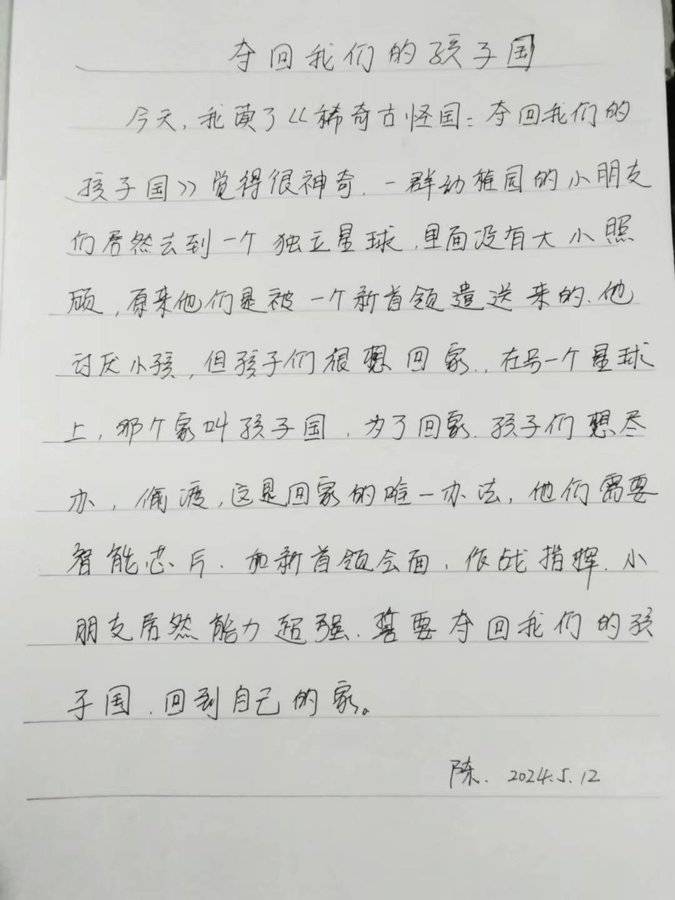 夺回我们的孩子国
今天,我读了《稀奇古怪国:夺回我们的
孩子国》觉得很神奇.一群幼稚园的小朋友
们居然去到一个独立星球,里面没有大小照
顾,原来他们是被一个新首领遣送来的.他
讨厌小孩,但孩子们很想回家,.在另一个星球
上,那个家叫孩子国.为了回家.孩子们想尽
办,偷渡,这是回家的唯一办法,他们需要
智能芯片.和新首领会面,作战指挥.小
朋友居然能力超强.誓要夺回我们的孩
子国.回到自己的家。
陈. 2024.5.12